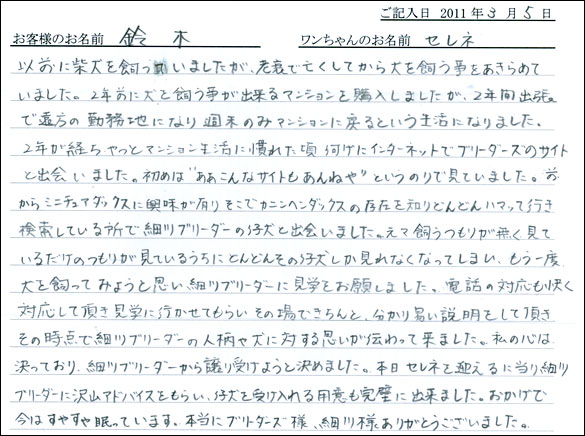 ご記入日 2011年3月5日
お客様のお名前 鈴木 ワンちゃんのお名前 セレネ
以前に柴犬を飼っていましたが、老衰で亡くしてから犬を飼う事をあきらめて
いました。2年前に犬を飼う事が出来るマンションを購入しましたが、2年間出張
で遠方の勤務地になり週末のみマンションに戻るという生活になりました、
2年が経ちやっとマンション生活に慣れた頃 何げにインターネットでブリーダーズのサイト
と出会いました。初めは"ああこんなサイトもあんねや"というのりで見ていました。前
からミニチュアダックスに興味が有りそこでカニンヘンダックスの存在を知りどんどんハマって行き
検索している所で細川ブリーダーの仔犬と出会いました。元々飼うつもりが無く見て
いるだけのつもりが見ているうちにどんどんその仔犬しか見れなくなってしまい、もう一度
犬を飼ってみようと思い細川ブリーダーに見学をお願しました。電話の対応も快く
対応して頂き見学に行かせてもらいその場できちんと、分かり易い説明をして頂き
その時点で細川ブリーダーの人柄や犬に対する思いが伝わって来ました。私の心は
決っており、細川ブリーダーから譲り受けようと決めました。本日セレネを迎えるに当り細川
ブリーダーに沢山アドバイスをもらい、仔犬を受け入れる用意も完璧に出来ました。おかげで
今はすやすや眠っています。本当にブリーダーズ様、細川様ありがとうございました。